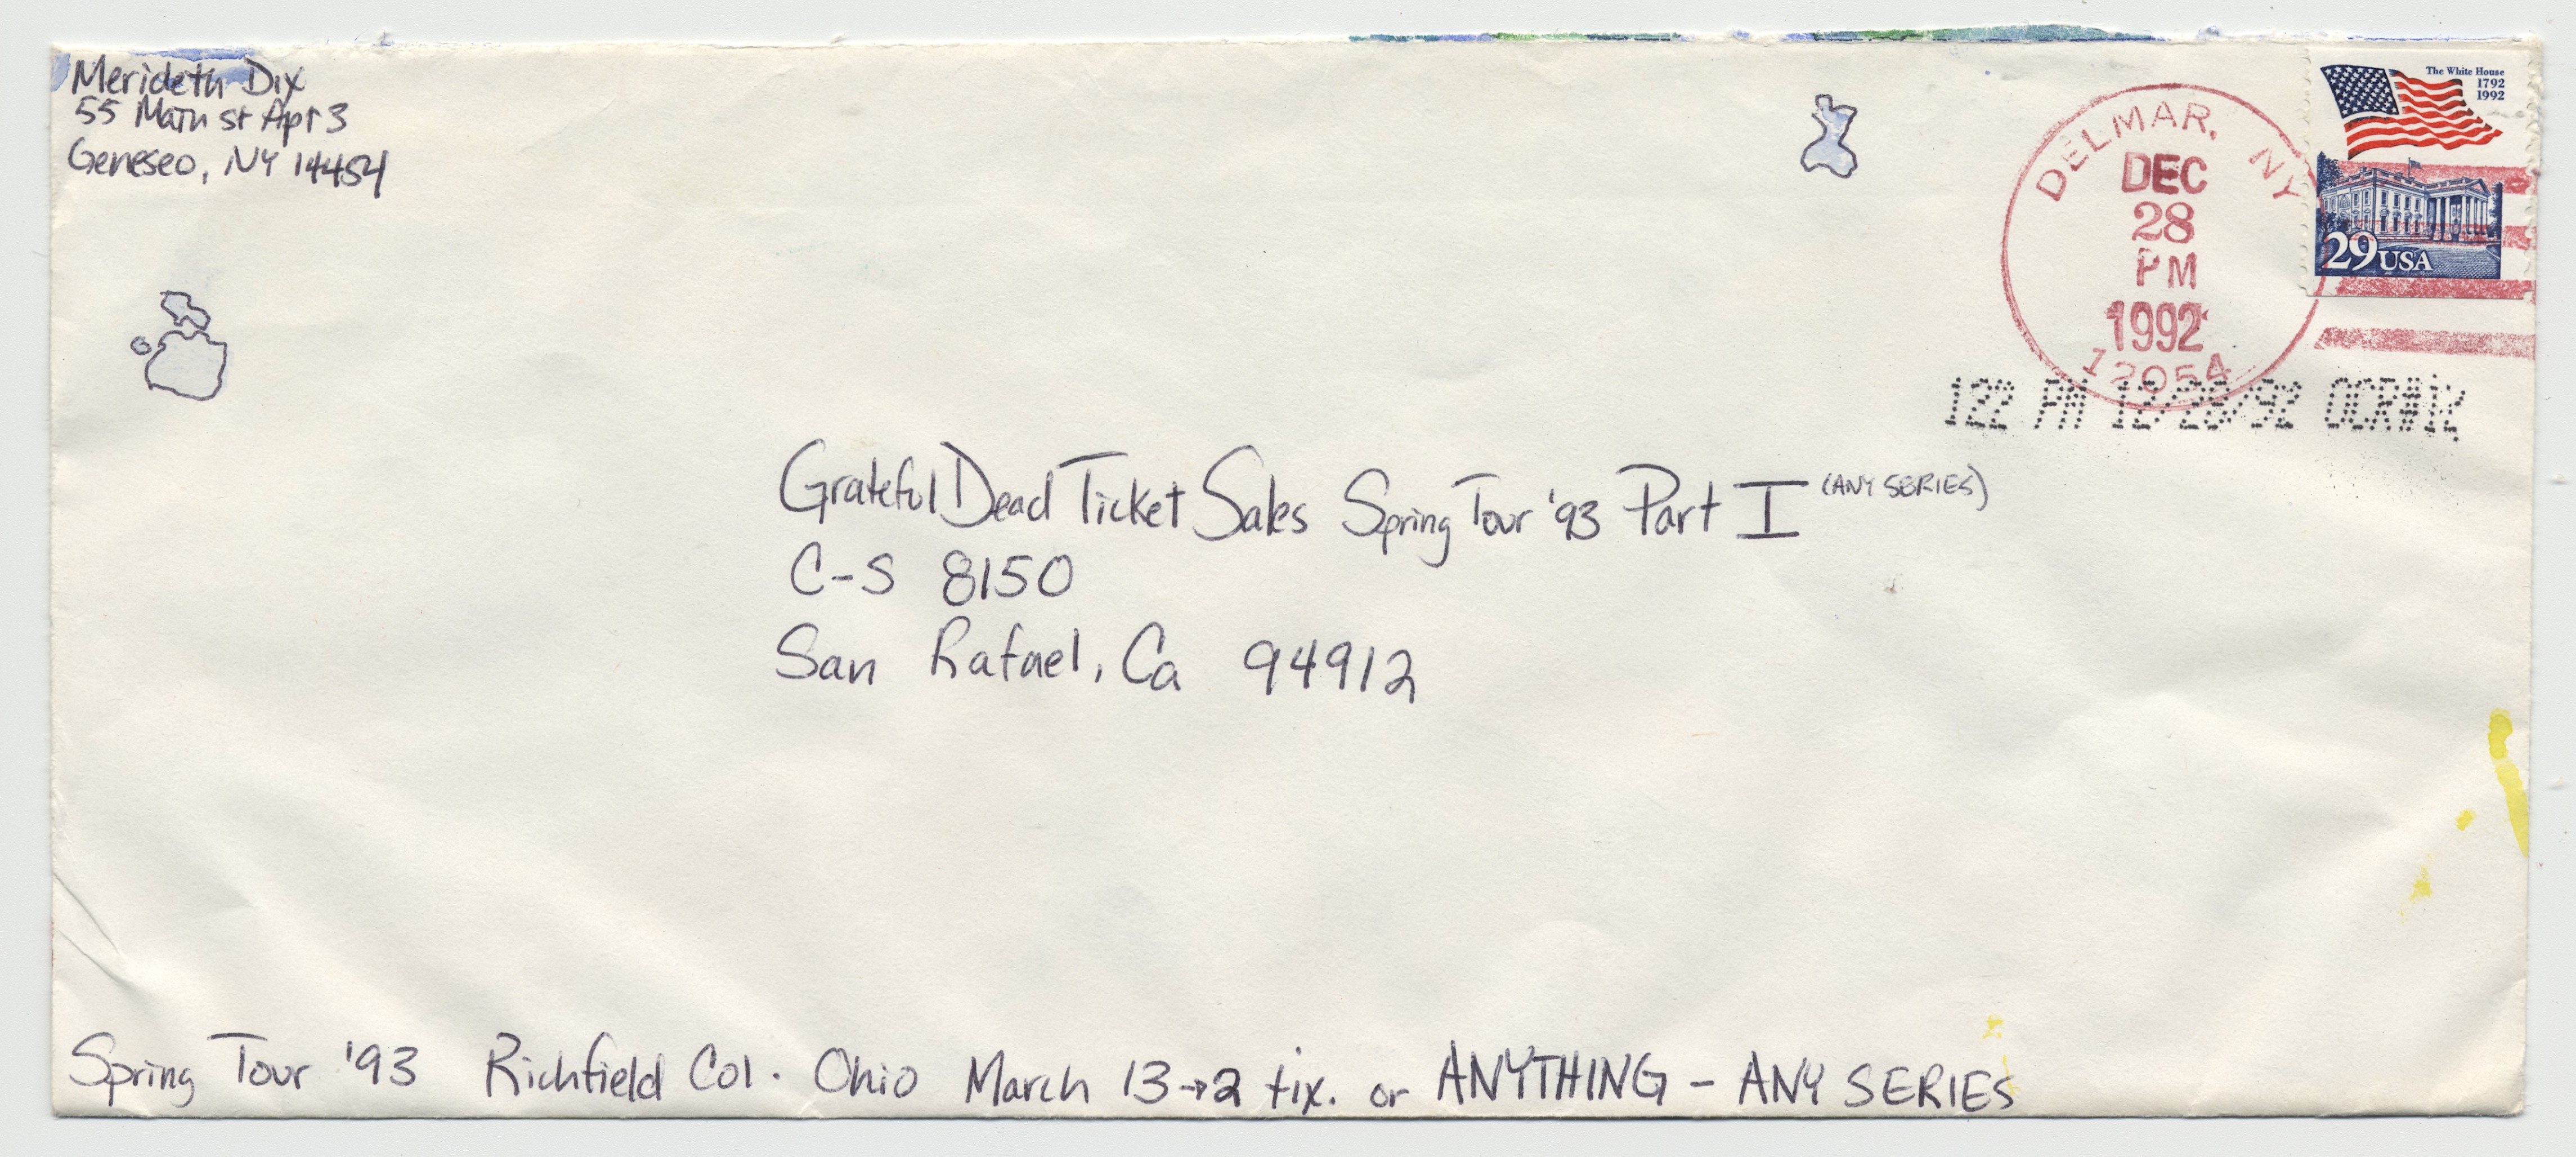 Merideth Dix
55 Main st Apt 3
Geneseo, NY 14454
The White House
1792
1992
29 USA
DELMAR, NY
DEC
28
PM
1992
12054
122 PM 12/28/92 OCR#
Grateful Dead Ticket Sales Spring Tour '93 Part I (ANY SERIES)
C-S 8150
San Rafael, Ca 94912
Spring Tour '93 Richfield Col. Ohio March 13→2 tix. or ANYTHING - ANY SERIES